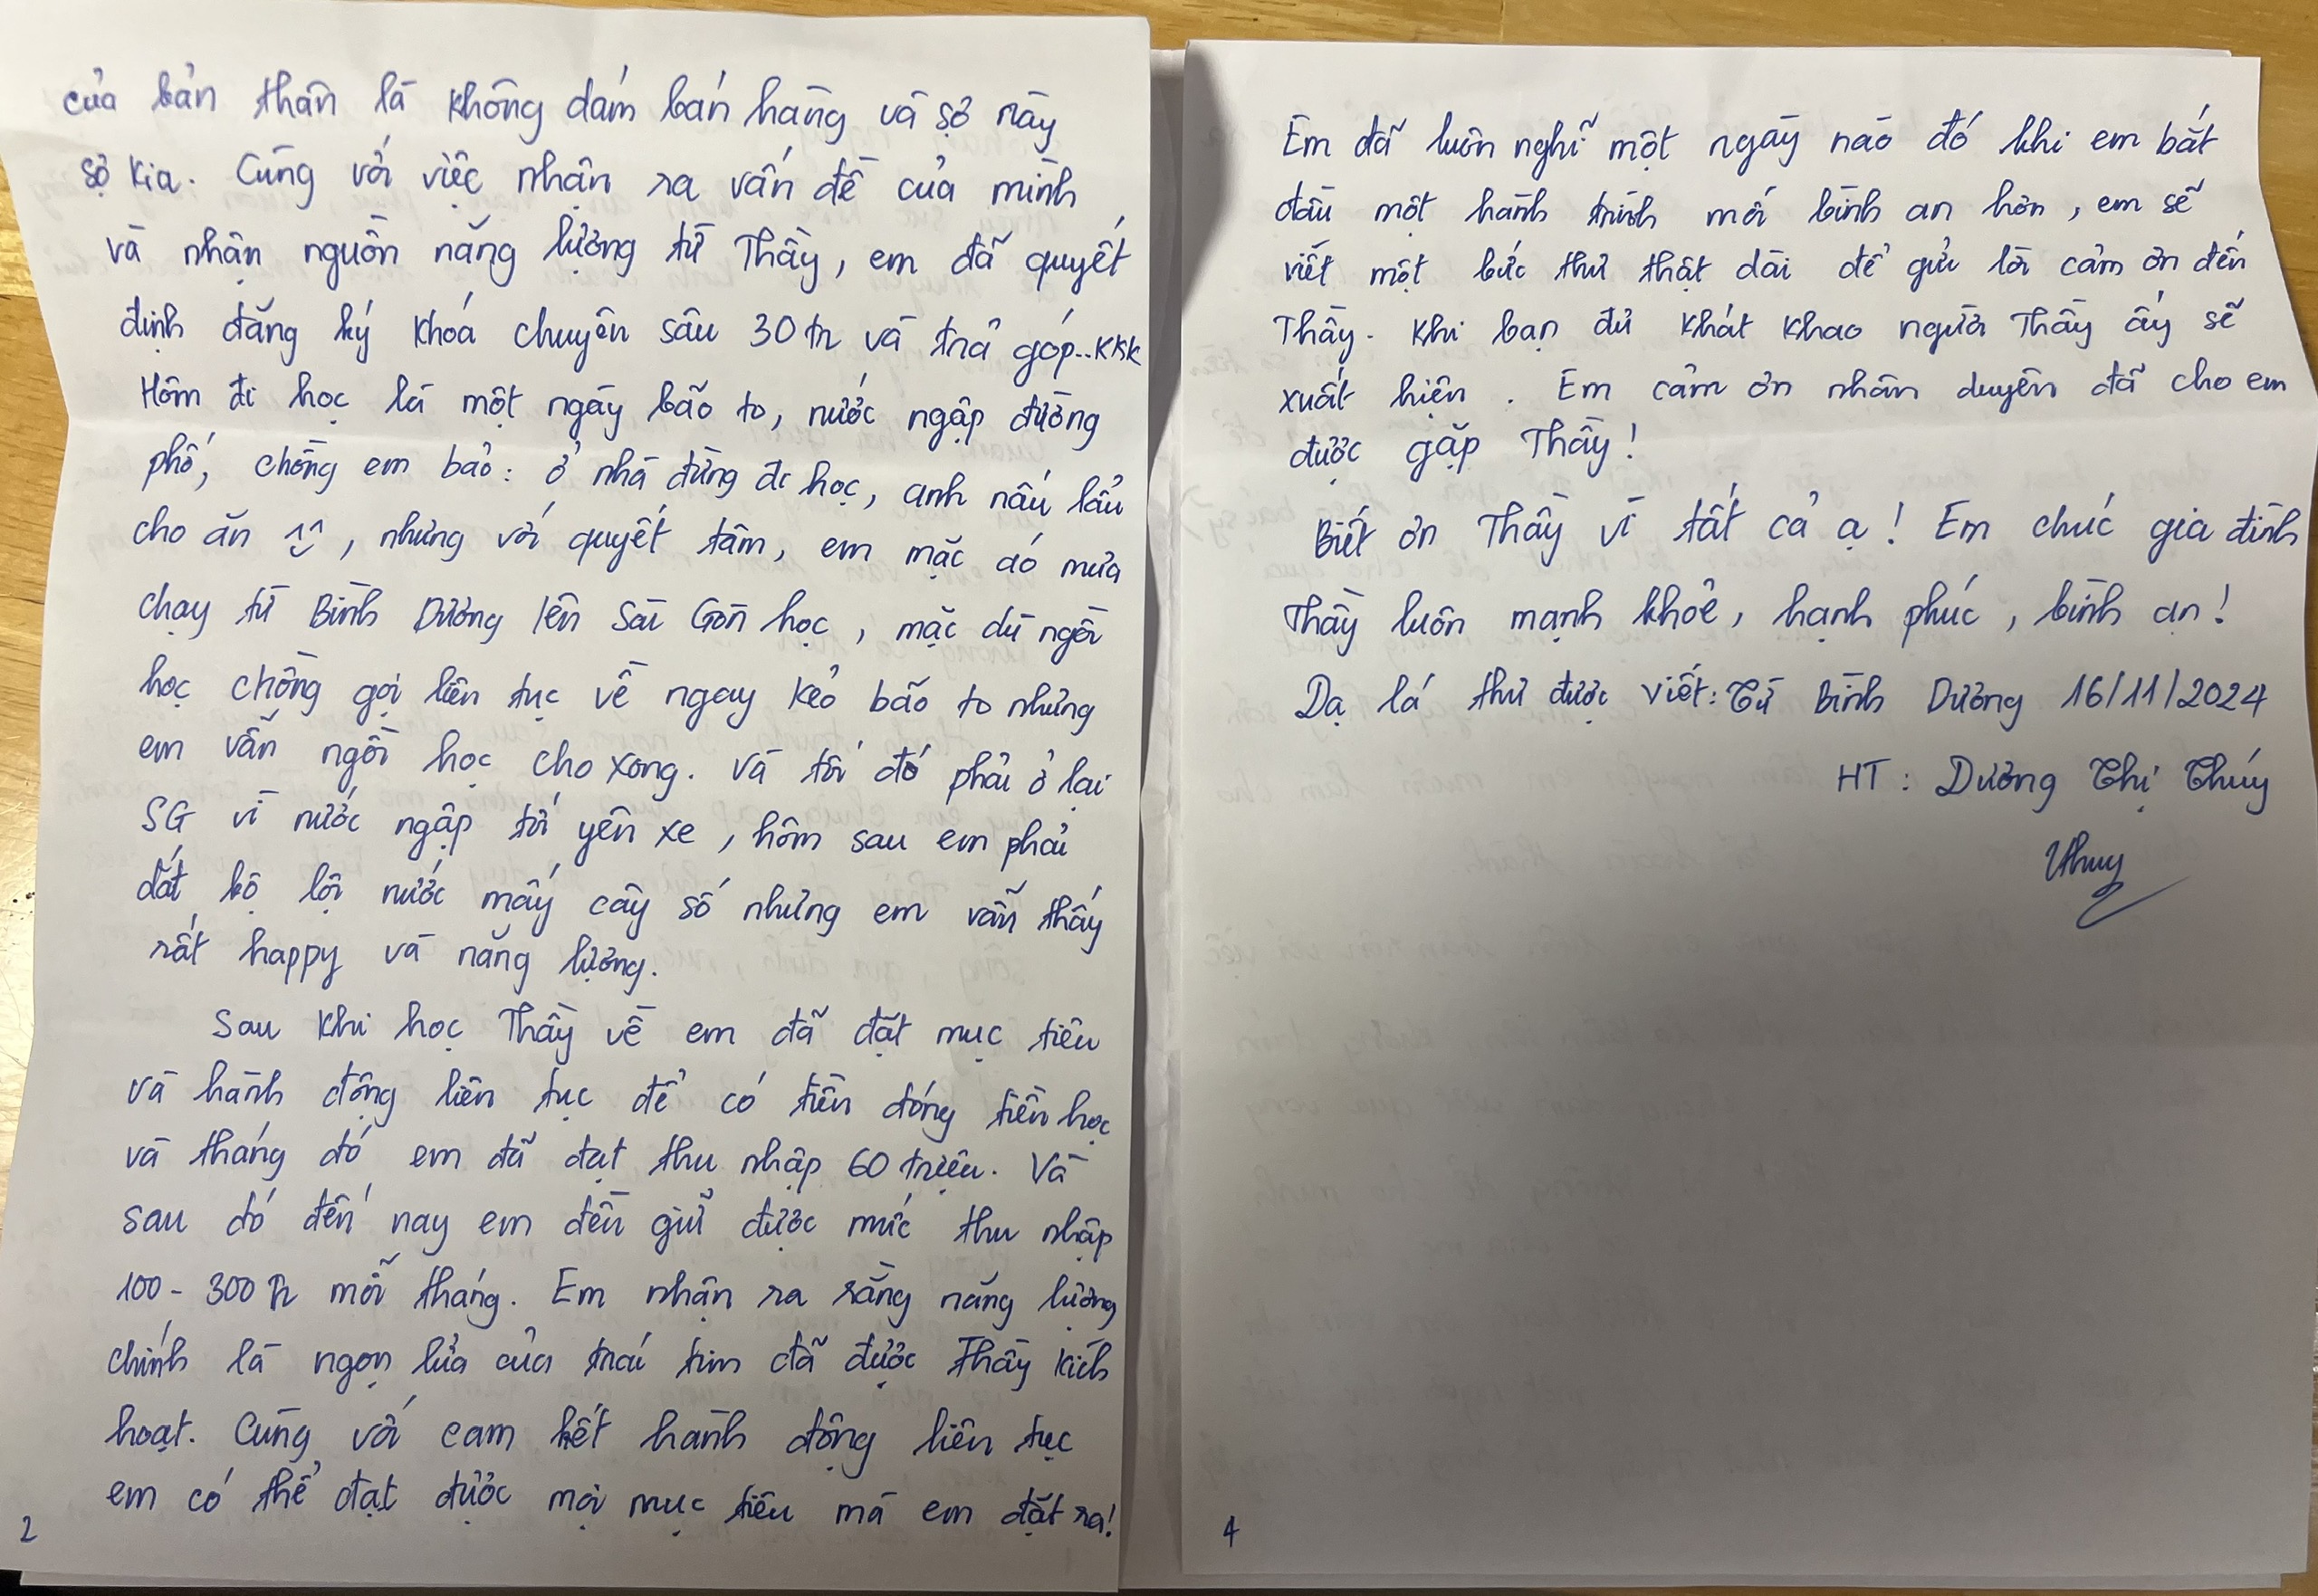 của bản thân là không dám bán hàng và sợ này
sợ kia. Cùng với việc nhận ra vấn đề của mình
và nhận nguồn năng lượng từ Thầy, em đã quyết
định đăng ký khóa chuyên sâu 30tr và trả góp..KKK
Hôm đi học là một ngày bão to, nước ngập đường
phố, chồng em bảo: ở nhà đừng đi học, anh nấu lẩu
cho ăn ^^, nhưng với quyết tâm, em mặc áo mưa
chạy từ Bình Dương lên Sài Gòn học, mặc dù ngồi
học chồng gọi liên tục về ngay kẻo bão to nhưng
em vẫn ngồi học cho xong. Và tối đó phải ở lại
SG vì nước ngập tới yên xe, hôm sau em phải
dắt bộ lội nước mấy cây số nhưng em vẫn thấy
rất happy và năng lượng.
Sau khi học Thầy về em đã đặt mục tiêu
và hành động liên tục để có tiền đóng tiền học
và tháng đó em đã đạt thu nhập 60 triệu. Và
sau đó đến nay em đều giữ được mức thu nhập
100 - 300 Tr mỗi tháng. Em nhận ra rằng năng lượng
chính là ngọn lửa của trái tim đã được Thầy kích
hoạt. Cùng với cam kết hành động liên tục
em có thể đạt được mọi mục tiêu mà em đặt ra!
2
Em đã luôn nghĩ một ngày nào đó khi em bắt
đầu một hành trình mới bình an hơn, em sẽ
viết một bức thư thật dài để gửi lời cảm ơn đến
Thầy. Khi bạn đủ khát khao người Thầy ấy sẽ
xuất hiện. Em cảm ơn nhân duyên đã cho em
được gặp Thầy!
Biết ơn Thầy vì tất cả ạ! Em chúc gia đình
Thầy luôn mạnh khoẻ, hạnh phúc, bình an!
Dạ lá thư được viết: Từ Bình Dương 16/11/2024
HT: Dương Thị Thúy
Thuy
4